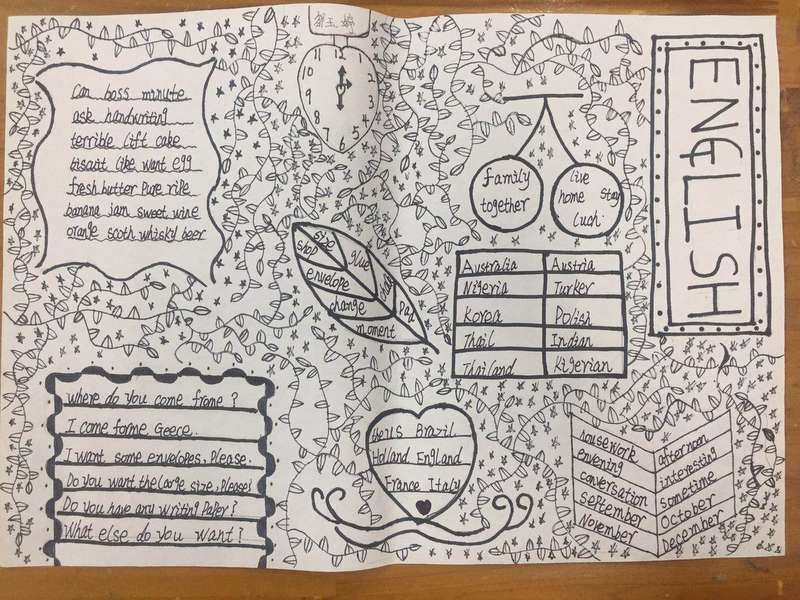 蔡玉婷
11 12 1
10 2
9 3
8 4
7 6 5
ENGLISH
Can boss minute
ask handwriting
terrible lift cake
biscuit like want egg
fresh butter pure ripe
banana jam sweet wine
orange scoth whisky beer
family
together
live
home stay
luch
size
shop glue
envelope chalk
change Pad
moment
Australia Austria
Nigeria Turker
Korea Polish
Thail Indian
Thailand Kigerian
Where do you come frome ?
I come forme Geece.
I want some envelopes, Please.
Do you want the large size, Please?
Do you have any writing Paper?
What else do you want?
the U.S Brazil
Holland England
France Italy
housework afternoon
envening interesting
conversation sometime
September October
November December